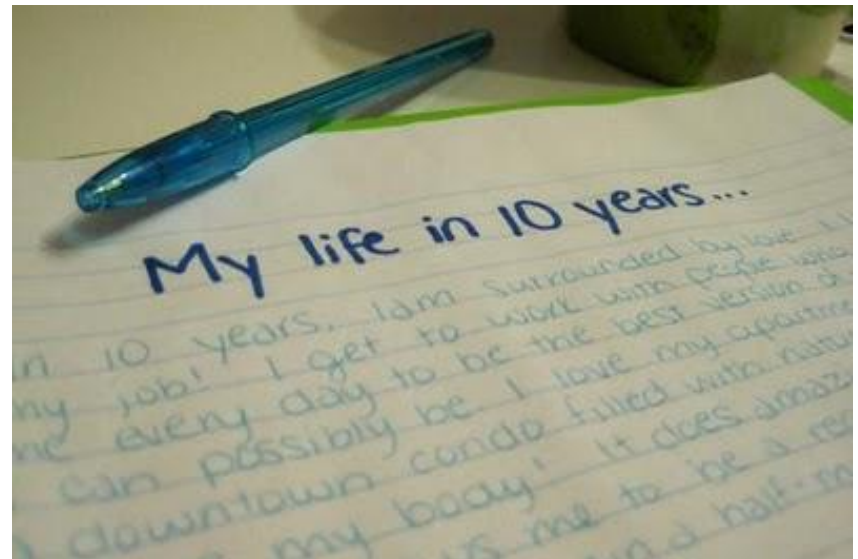 My life in 10 years...
in 10 years, I am surrounded by love. I
my job! I get to work with people who
me every day to be the best version of
can possibly be. I love my apartme
downtown condo filled with natur
my body! It does amaz
me to be a rec
a half-m